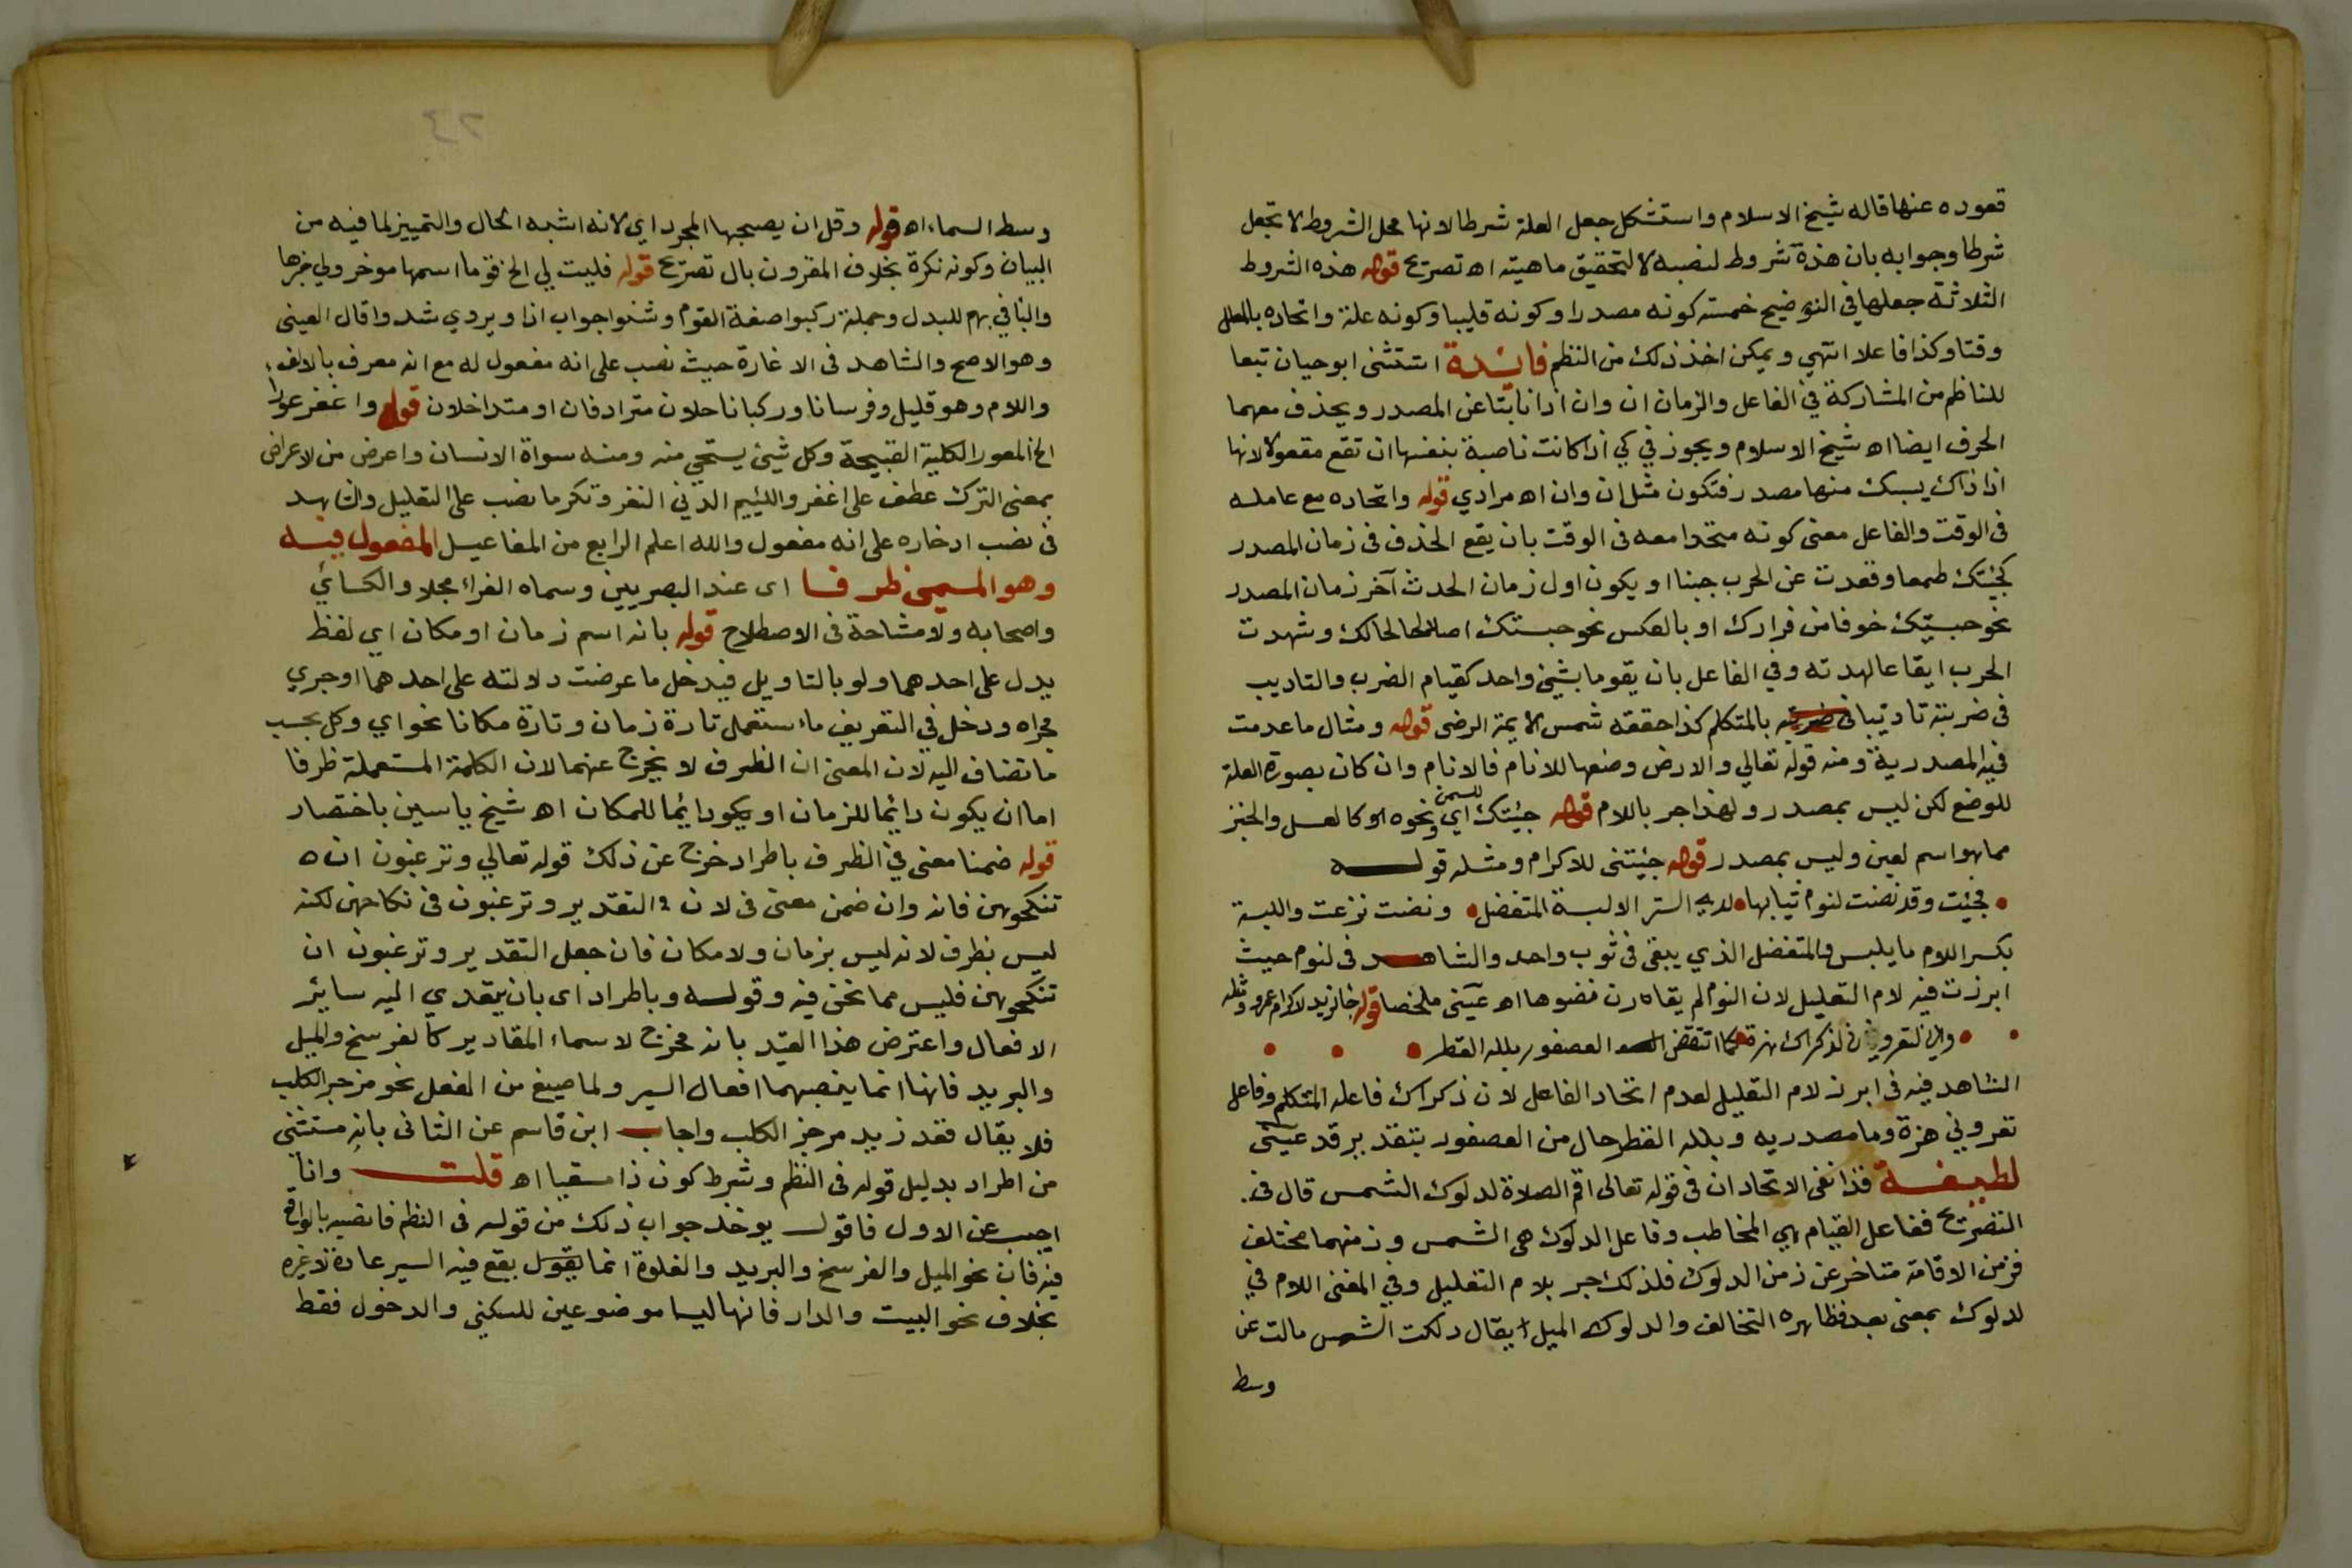 قعوده عنها قاله شيخ الاسلام واستشكل جعل العلة شرطا لانها محل الشروط لا تجعل
شرطا وجوابه بان هذة شروط لنصبه لا لتحقيق ماهيته اه تصريح قوله هذه الشروط
الثلاثة جعلها في التوضيح خمسة كونه مصدرا وكونه قلبيا وكونه علة واتحاده بالمعلل
وقتا وكذا فاعلا انتهي ويمكن اخذ ذلك من النظم فائدة استثنى ابو حيان تبعا
للناظم من المشاركة في الفاعل والزمان ان وان اذا نابتا عن المصدر ويحذف معهما
الحرف ايضا اه شيخ الاسلام ويجوز في كي اذا كانت ناصبة بنفسها ان تقع مفعولا لانها
اذا ذاك يسبك منها مصدر فتكون مثل ان وان اه مرادي قوله واتحاده مع عامله
فى الوقت والفاعل معنى كونه متحدا معه فى الوقت بان يقع الحدث فى زمان المصدر
كجئتك طمعا وقعدت عن الحرب جبنا او يكون اول زمان الحدث آخر زمان المصدر
نحو حبستك خوفا من فرارك او بالعكس نحو جئتك اصلاحا لحالك وشهدت
الحرب ايقاعا لهدنه وفي الفاعل بان يقوما بشئ واحد كقيام الضرب والتاديب
فى ضربته تاديبا بالمتكلم كذا حققه شمس الائمة الرضى قوله ومثال ما عدمت
فيه المصدرية ومنه قوله تعالي والارض وضعها للانام فالانام وان كان بصورة العلة
للوضع لكن ليس بمصدر ولهذا جر باللام قوله جئتك اي للسمن ونحوه اى كالعسل والخبز
مما هو اسم لعين وليس بمصدر قوله جئتنى للاكرام ومثله قوله
فجئت وقد نضت لنوم ثيابها لدى الستر الا لبسة المتفضل ونضت نزعت واللبسة
بكسر اللام ما يلبس والمتفضل الذي يبقى فى ثوب واحد والشاهد فى لنوم حيث
ابرزت فيه لام التعليل لان النوم لم يقارن نضوها اه عينى ملخصا قوله جا زيد لاكرام عمرو ومثله
واني لتعروني لذكراك هزة كما انتفض العصفور بلله القطر
الشاهد فيه فى ابرز لام التعليل لعدم اتحاد الفاعل لان ذكراك فاعله المتكلم وفاعل
تعروني هزة وما مصدريه وبلله القطر حال من العصفور بتقدير قد عينى
لطيفة قد انتفى الاتحادان فى قوله تعالى اقم الصلاة لدلوك الشمس قال فى
التصريح ففاعل القيام هي المخاطب وفاعل الدلوك هى الشمس وزمنهما مختلف
فزمن الاقامة متاخر عن زمن الدلوك فلذلك جر بلام التعليل وفي المغنى اللام في
لدلوك بمعنى بعد فظاهره التخالف والدلوك الميل يقال دلكت الشمس مالت عن
وسط
وسط السماء اه قوله وقل ان يصحبها المجرد اي لانه اشبه الحال والتمييز لما فيه من
البيان وكونه نكرة بخلاف المقرون بال تصريح قوله فليت لي الخ قوما اسمها موخر ولي خبرها
والبا في بهم للبدل وجملة ركبوا صفة القوم وشنوا جواب اذا ويروي شدوا قال العينى
وهو الاصح والشاهد فى الاغارة حيث نصب على انه مفعول له مع انه معرف بالالف
واللام وهو قليل وفرسانا وركبانا حلان مترادفان او متداخلان قوله واغفر عورا
الخ العورا الكلمة القبيحة وكل شيئ يستحي منه ومنه سواة الانسان واعرض من الاعراض
بمعنى الترك عطف على اغفر واللئيم الدني النفر وتكرما نصب على التعليل والشاهد
فى نصب ادخاره على انه مفعول والله اعلم الرابع من المفاعيل المفعول فيه
وهو المسمى ظرفا اى عند البصريين وسماه الفراء محلا والكسائي
واصحابه ولا مشاحة فى الاصطلاح قوله بانه اسم زمان او مكان اي لفظ
يدل على احدهما ولو بالتاويل فيدخل ما عرضت دلالته على احدهما او جري
مجراه ودخل في التعريف ما استعمل تارة زمان وتارة مكانا نحو اي وكل بحسب
ما تضاف اليه لان المعنى ان الظرف لا يخرج عنهما لان الكلمة المستعملة ظرفا
اما ان يكون دائما للزمان او يكون دائما للمكان اه شيخ ياسين باختصار
قوله ضمنا معنى في الظرف باطراد خرج عن ذلك قوله تعالي وترغبون ان
تنكحوهن فانه وان ضمن معنى فى لان التقدير وترغبون فى نكاحهن لكنه
ليس بظرف لانه ليس بزمان ولا مكان فان جعل التقدير وترغبون ان
تنكحوهن فليس مما نحن فيه وقوله وباطراد اى بان يتعدي اليه سائر
الافعال واعترض هذا القيد بانه مخرج لاسماء المقادير كالفرسخ والميل
والبريد فانها انما ينصبهما افعال السير ولما صيغ من الفعل نحو مزجر الكلب
فلا يقال قعد زيد مزجر الكلب واجاب ابن قاسم عن الثانى بانه مستثنى
من اطراد بدليل قوله فى النظم وشرط كون ذا مقيسا اه قلت وانا
اجيب عن الاول فاقول يوخذ جواب ذلك من قوله فى النظم فانصبه بالواقع
فيه فان نحو الميل والفرسخ والبريد والغلوة انما يقع فيه السير عادة لا غيره
بخلاف نحو البيت والدار فانها ليسا موضوعين للسكنى والدخول فقط